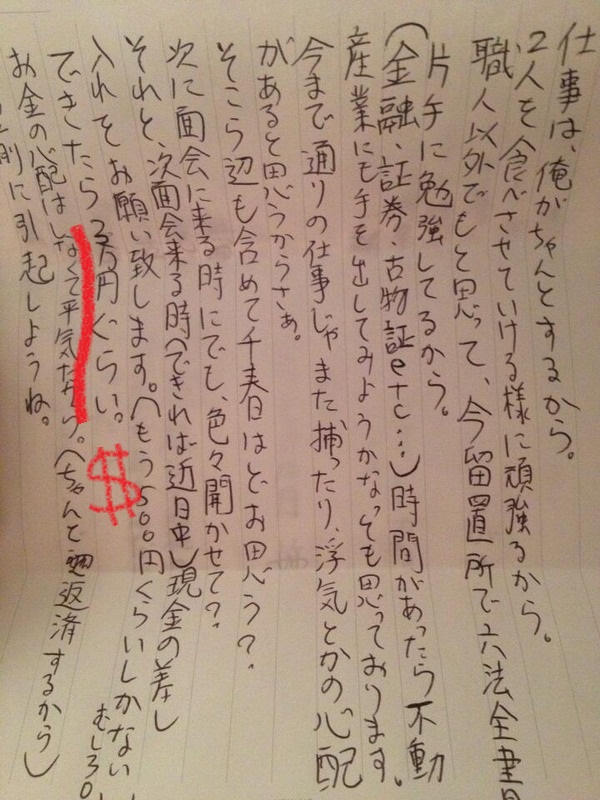 仕事は、俺がちゃんとするから。
2人を食べさせていける様に頑強るから。
職人以外でもと思って、今留置所で六法全書
片手に勉強してるから。
(金融、証券、古物証etc…)時間があったら不動
産業にも手を出してみようかなっても思っております。
今まで通りの仕事じゃまた捕ったり、浮気とかの心配
があると思うからさぁ。
そこら辺も含めて千春はどお思う?
次に面会に来る時にでも、色々開かせて?
それと、次面会来る時(できれば近日中)現金の差し
入れをお願い致します。(もう500円くらいしかない)
できたら3万円ぐらい。$ むしろ
お金の心配はしなくて平気だから。(ちゃんと返済するから)
前に引起しようね。